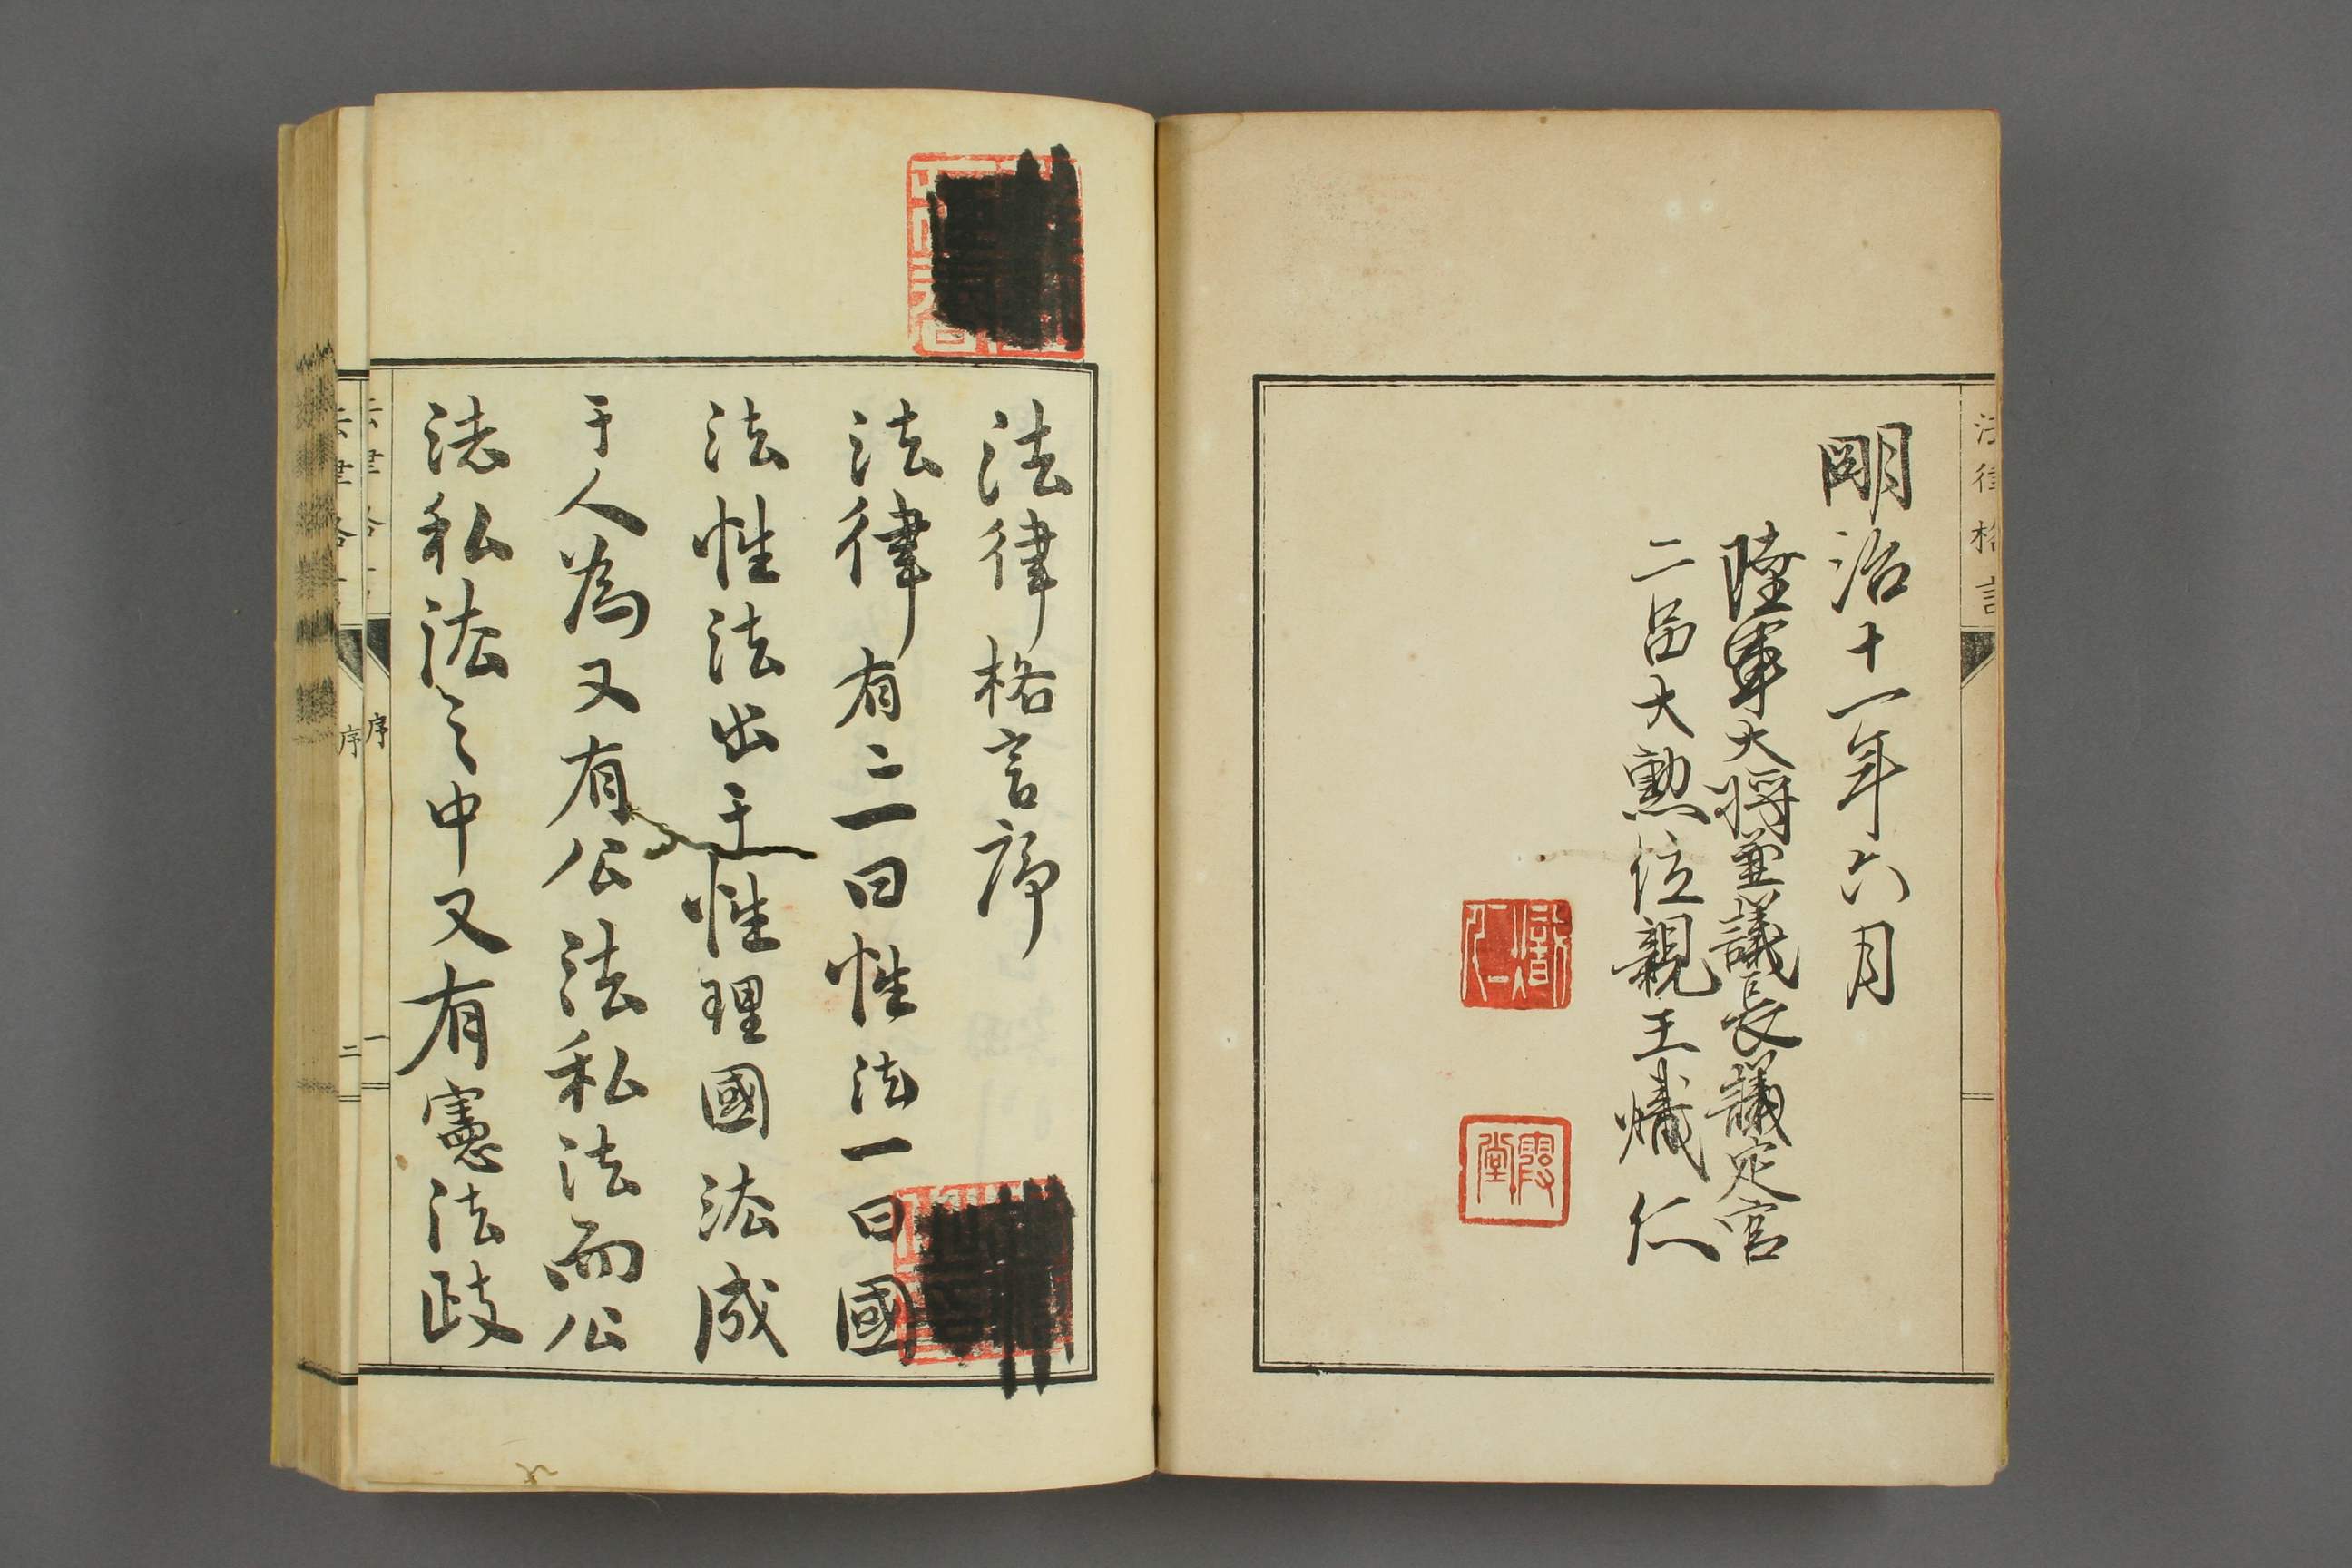 法律格言
明治十一年六月
陸軍大将兼議長議定官
二品大勲位親王熾仁
熾仁
霞堂
法律格言序
法律有二一曰性法一曰國
法性法出于性理國法成
于人為又有公法私法而公
法私法之中又有憲法政
序 一
序 二